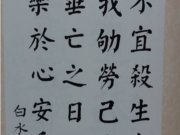 不宜殺生
我劬勞己
垂亡之日
樂於心安
白水